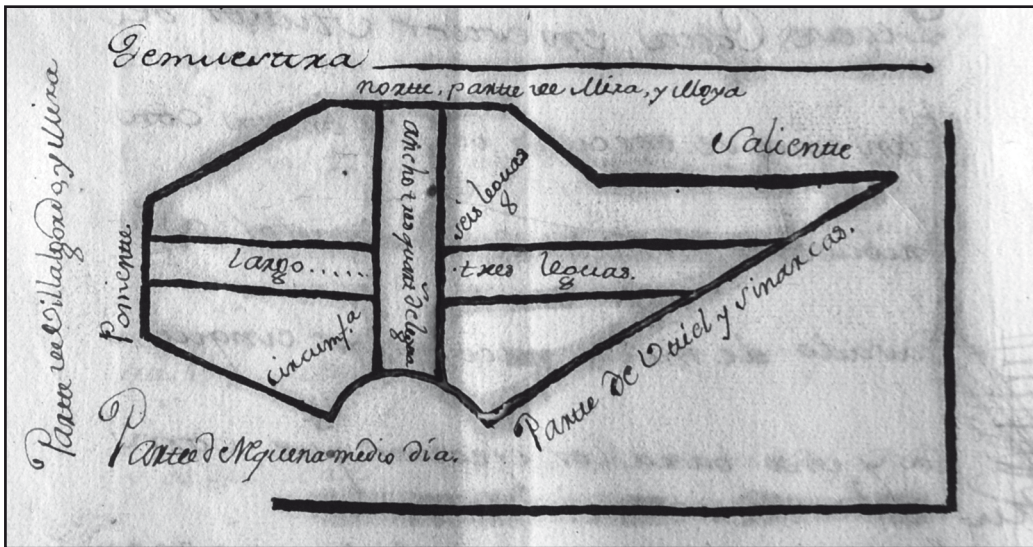 Demuestra
norte, parte de Mira, y Moya
Saliente
Parte de Villalgordo, y Mira
Poniente
ancho tres quart.s de legua
seis leguas
largo......
.tres leguas.
circumf.a
Parte de Utiel y Sinarcas.
Parte de Rquena medio dia.